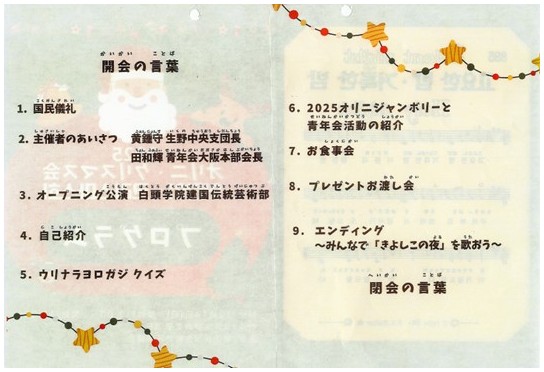 開会の言葉
1. 国民儀礼
2. 主催者のあいさつ 黄鍾守 生野中央支団長
田和輝 青年会大阪本部会長
3. オープニング公演 白頭学院建国伝統芸術部
4. 自己紹介
5. ウリナラヨロガジ クイズ
6. 2025オリニジャンボリーと
青年会活動の紹介
7. お食事会
8. プレゼントお渡し会
9. エンディング
～みんなで「きよしこの夜」を歌おう～
閉会の言葉